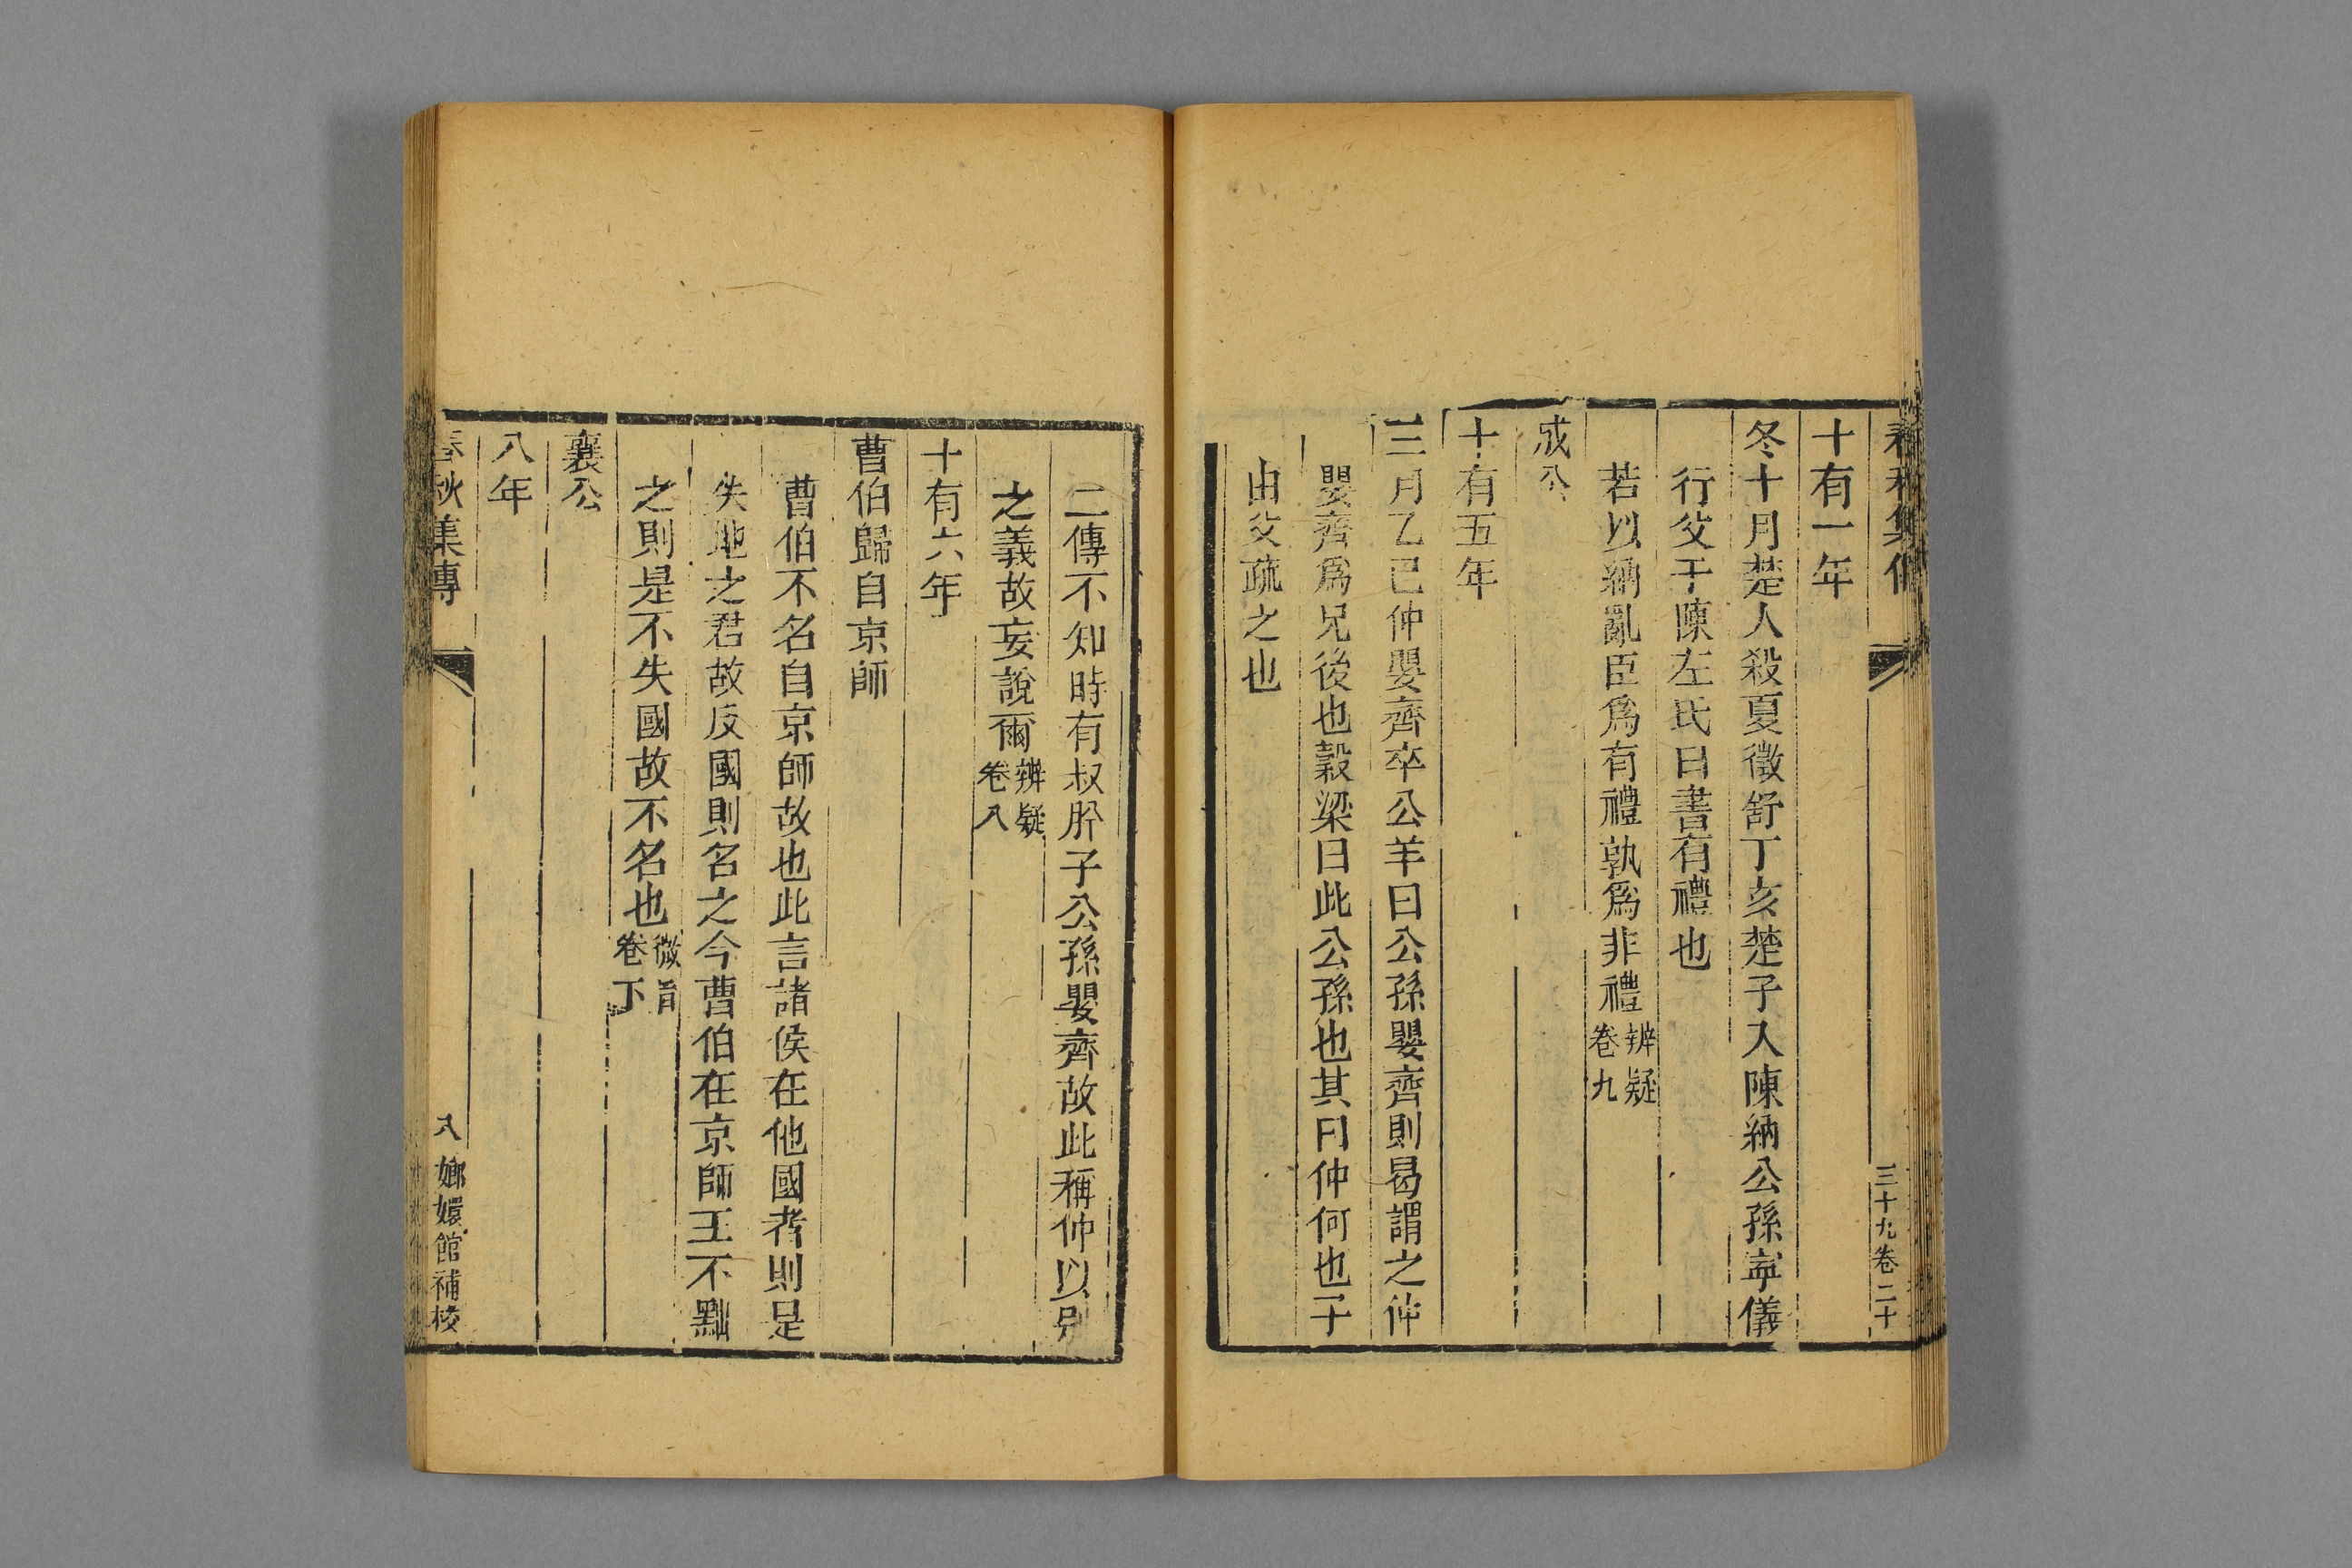 春秋集傳
三十九卷二十
十有一年
冬十月楚人殺夏徵舒丁亥楚子入陳納公孫寧儀
行父于陳左氏曰書有禮也
若以納亂臣爲有禮孰爲非禮
辨疑
卷九
成公
十有五年
三月乙巳仲嬰齊卒公羊曰公孫嬰齊則曷謂之仲
嬰齊爲兄後也穀梁曰此公孫也其曰仲何也子
由父疏之也
二傳不知時有叔肸子公孫嬰齊故此稱仲以別
之義故妄說爾
辨疑
卷八
十有六年
曹伯歸自京師
曹伯不名自京師故也此言諸侯在他國者則是
失地之君故反國則名之今曹伯在京師王不黜
之則是不失國故不名也
微旨
卷下
襄公
八年
春秋集傳
八
嫏嬛館補校